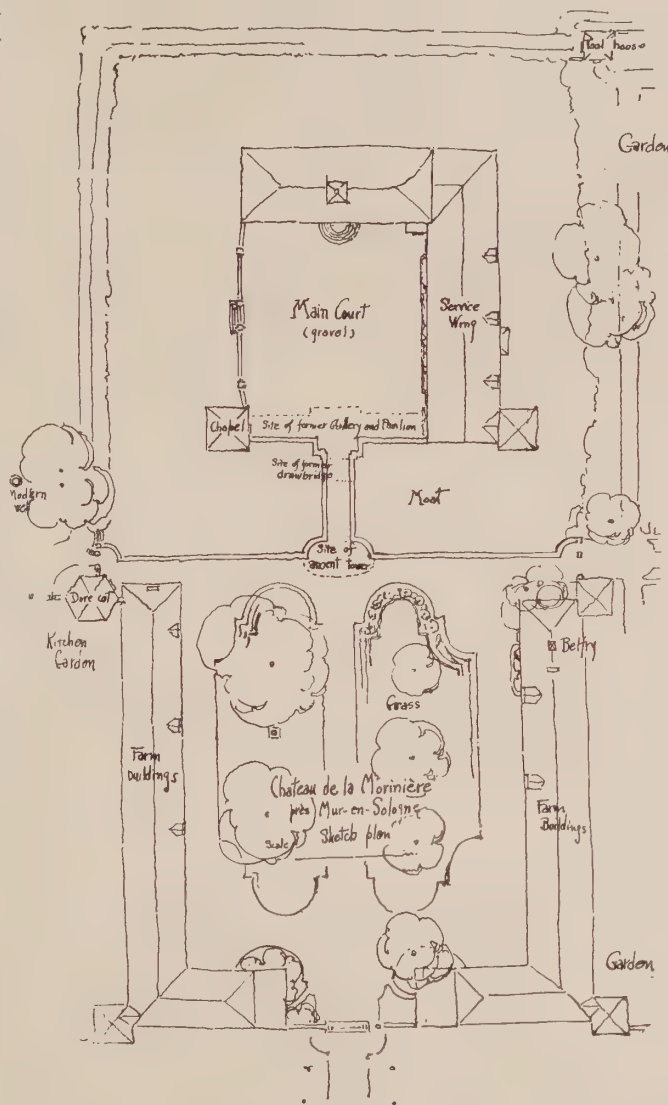 Boat house
Garden
Main Court
(gravel)
Service
Wing
Chapel
Site of former Gallery and Pavilion
Site of former
drawbridge
Moat
Modern
well
Site of
ancient tower
Dove cot
Kitchen
Garden
Belfry
Grass
Farm
buildings
Chateau de la Morinière
près Mur-en-Sologne
Sketch plan
Scale
Farm
Buildings
Garden